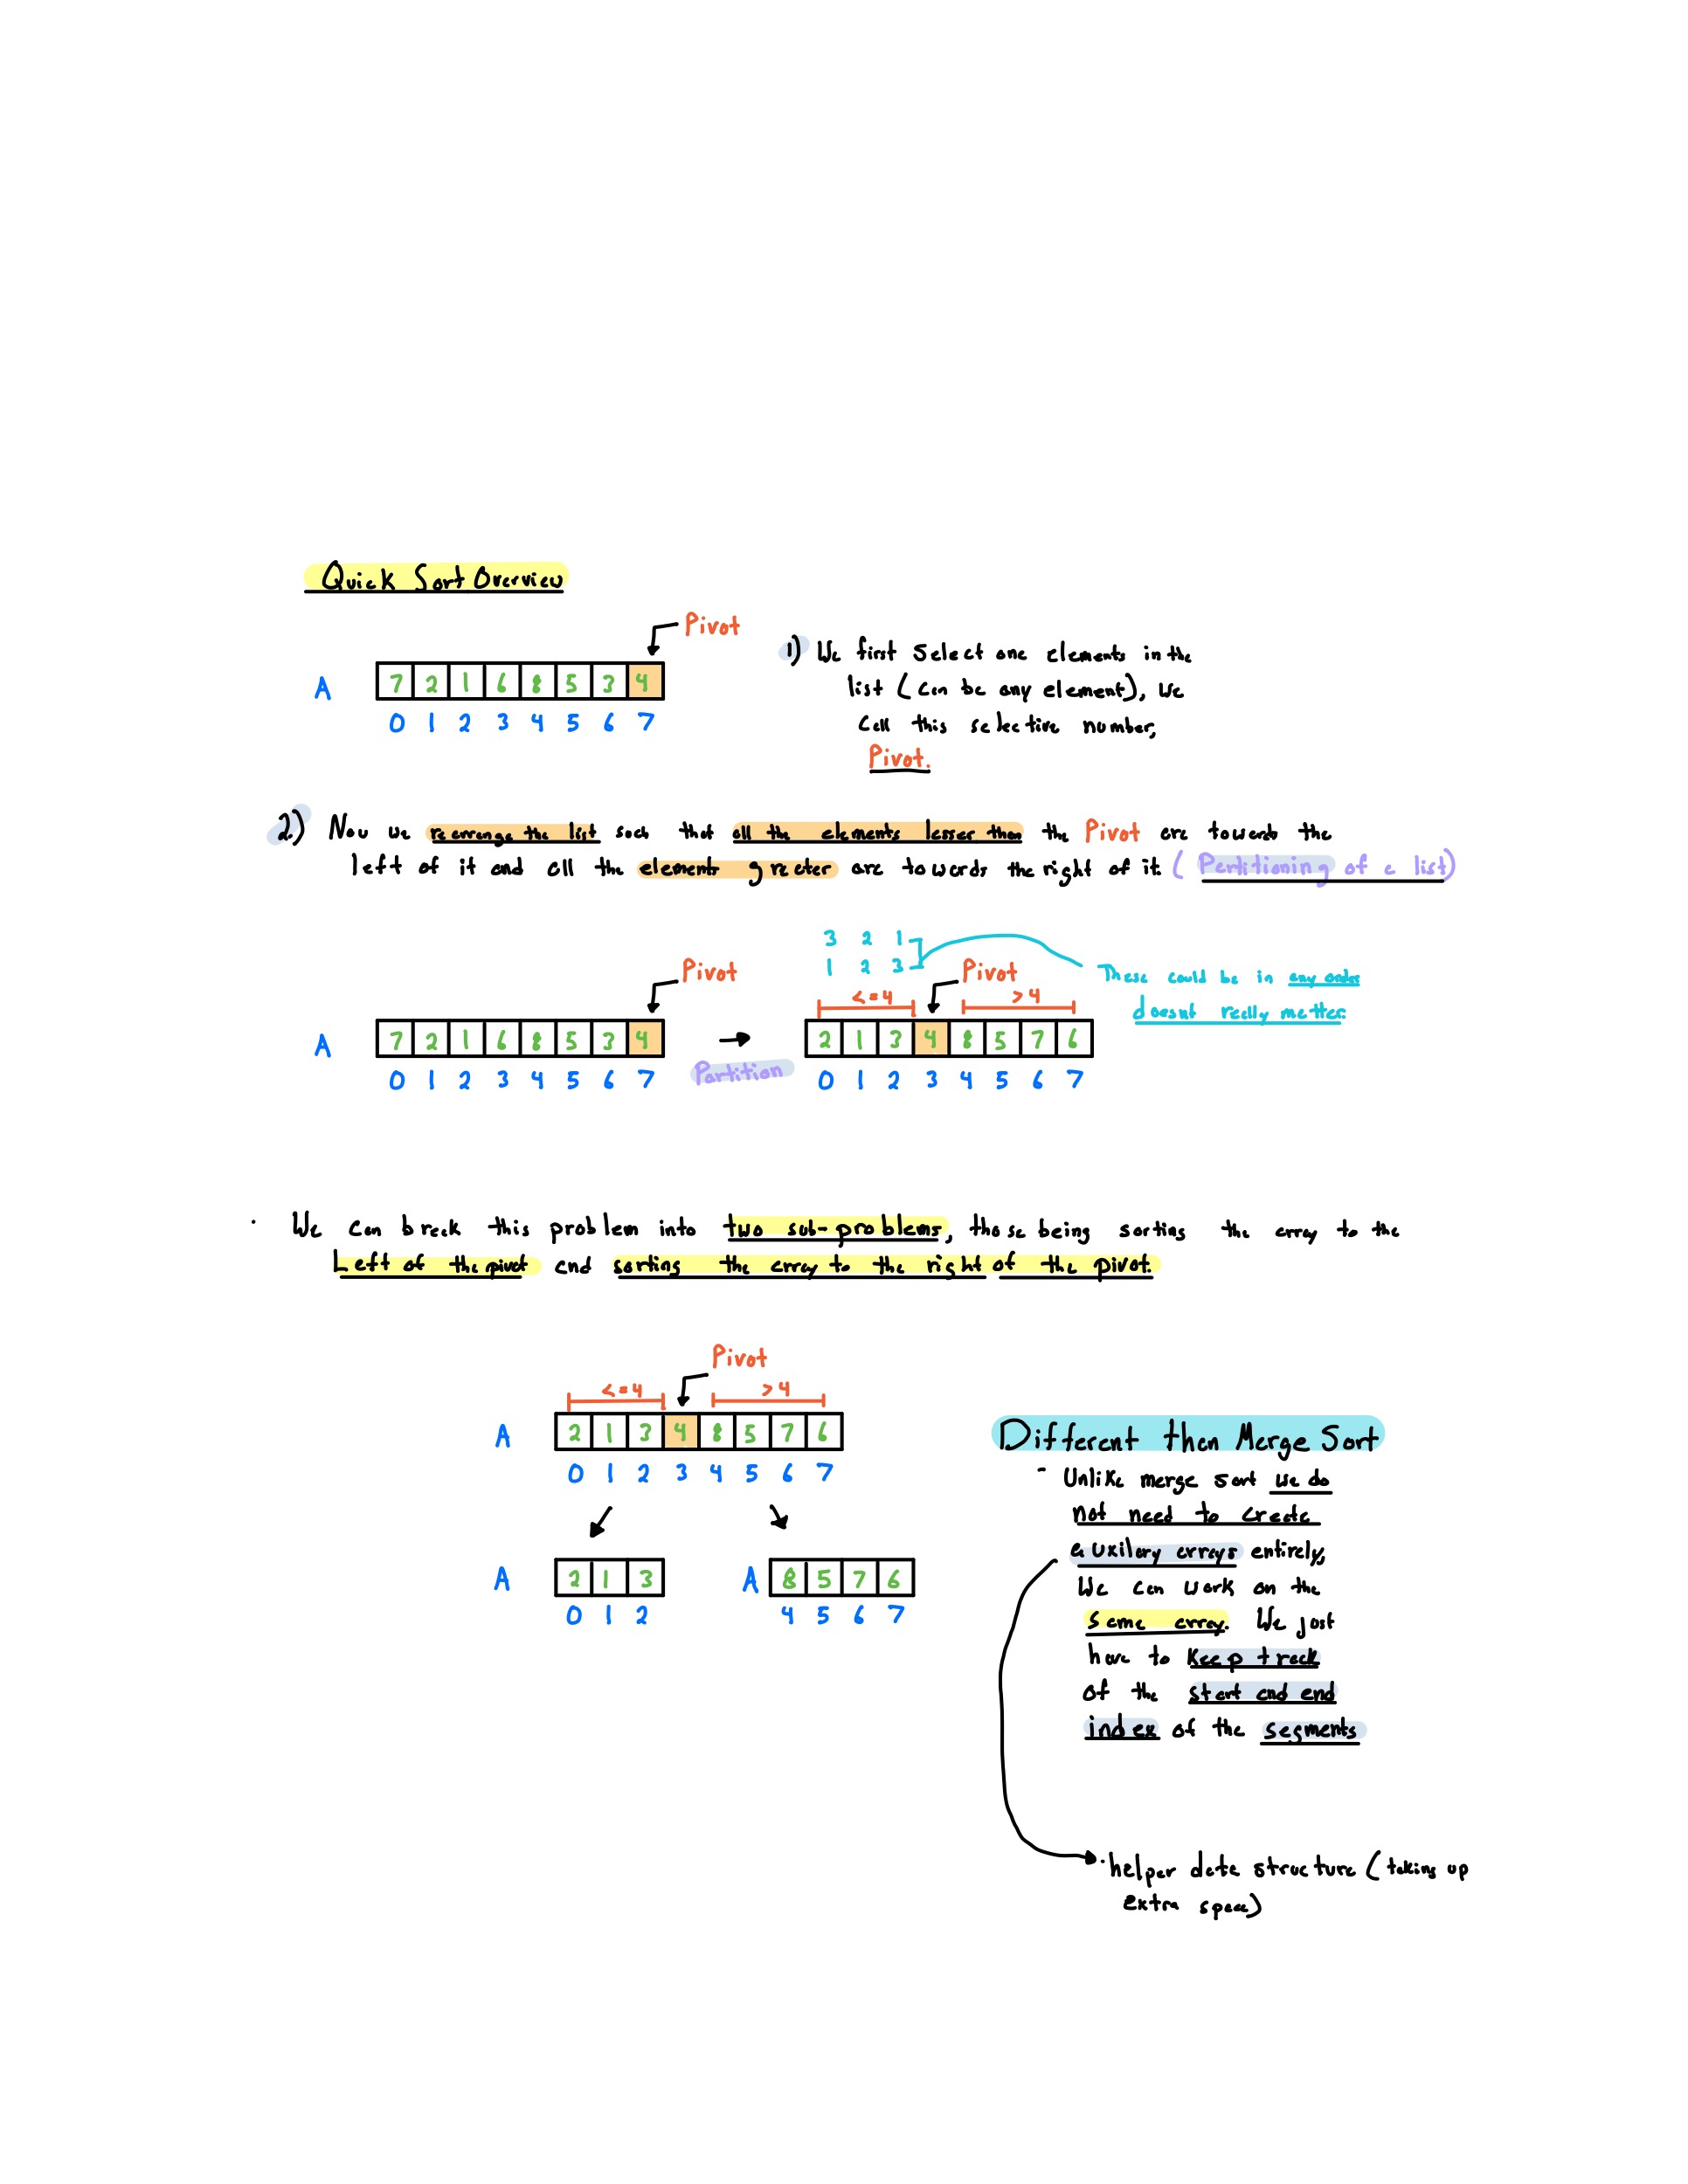 Quick Sort Overview
Pivot
A 7 2 1 6 8 5 3 4
0 1 2 3 4 5 6 7
1) We first select one elements in the
list (can be any element), we
call this selective number,
Pivot.
2) Now we rearrange the list such that all the elements lesser than the Pivot are towards the
left of it and all the elements greater are towards the right of it. (Partitioning of a list)
Pivot
A 7 2 1 6 8 5 3 4
0 1 2 3 4 5 6 7
Partition
3 2 1
1 2 3
Pivot
<=4 >4
2 1 3 4 8 5 7 6
0 1 2 3 4 5 6 7
These could be in any order
doesnt really matter.
· We can break this problem into two sub-problems, those being sorting the array to the
Left of the pivot and sorting the array to the right of the pivot.
Pivot
<=4 >4
A 2 1 3 4 8 5 7 6
0 1 2 3 4 5 6 7
A 2 1 3
0 1 2
A 8 5 7 6
4 5 6 7
Different than Merge Sort
- Unlike merge sort we do
not need to create
auxilary arrays entirely,
We can work on the
same array. We just
have to keep track
of the start and end
index of the segments
· helper data structure (taking up
extra space)